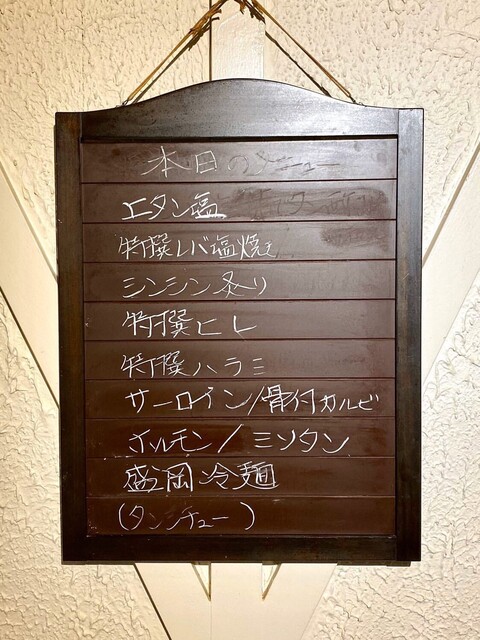 本日のメニュー
上タン塩
特撰レバ塩焼き
シンシン炙り
特撰ヒレ
特撰ハラミ
サーロイン/骨付カルビ
ホルモン/ミソタン
盛岡冷麺
(タンシチュー)